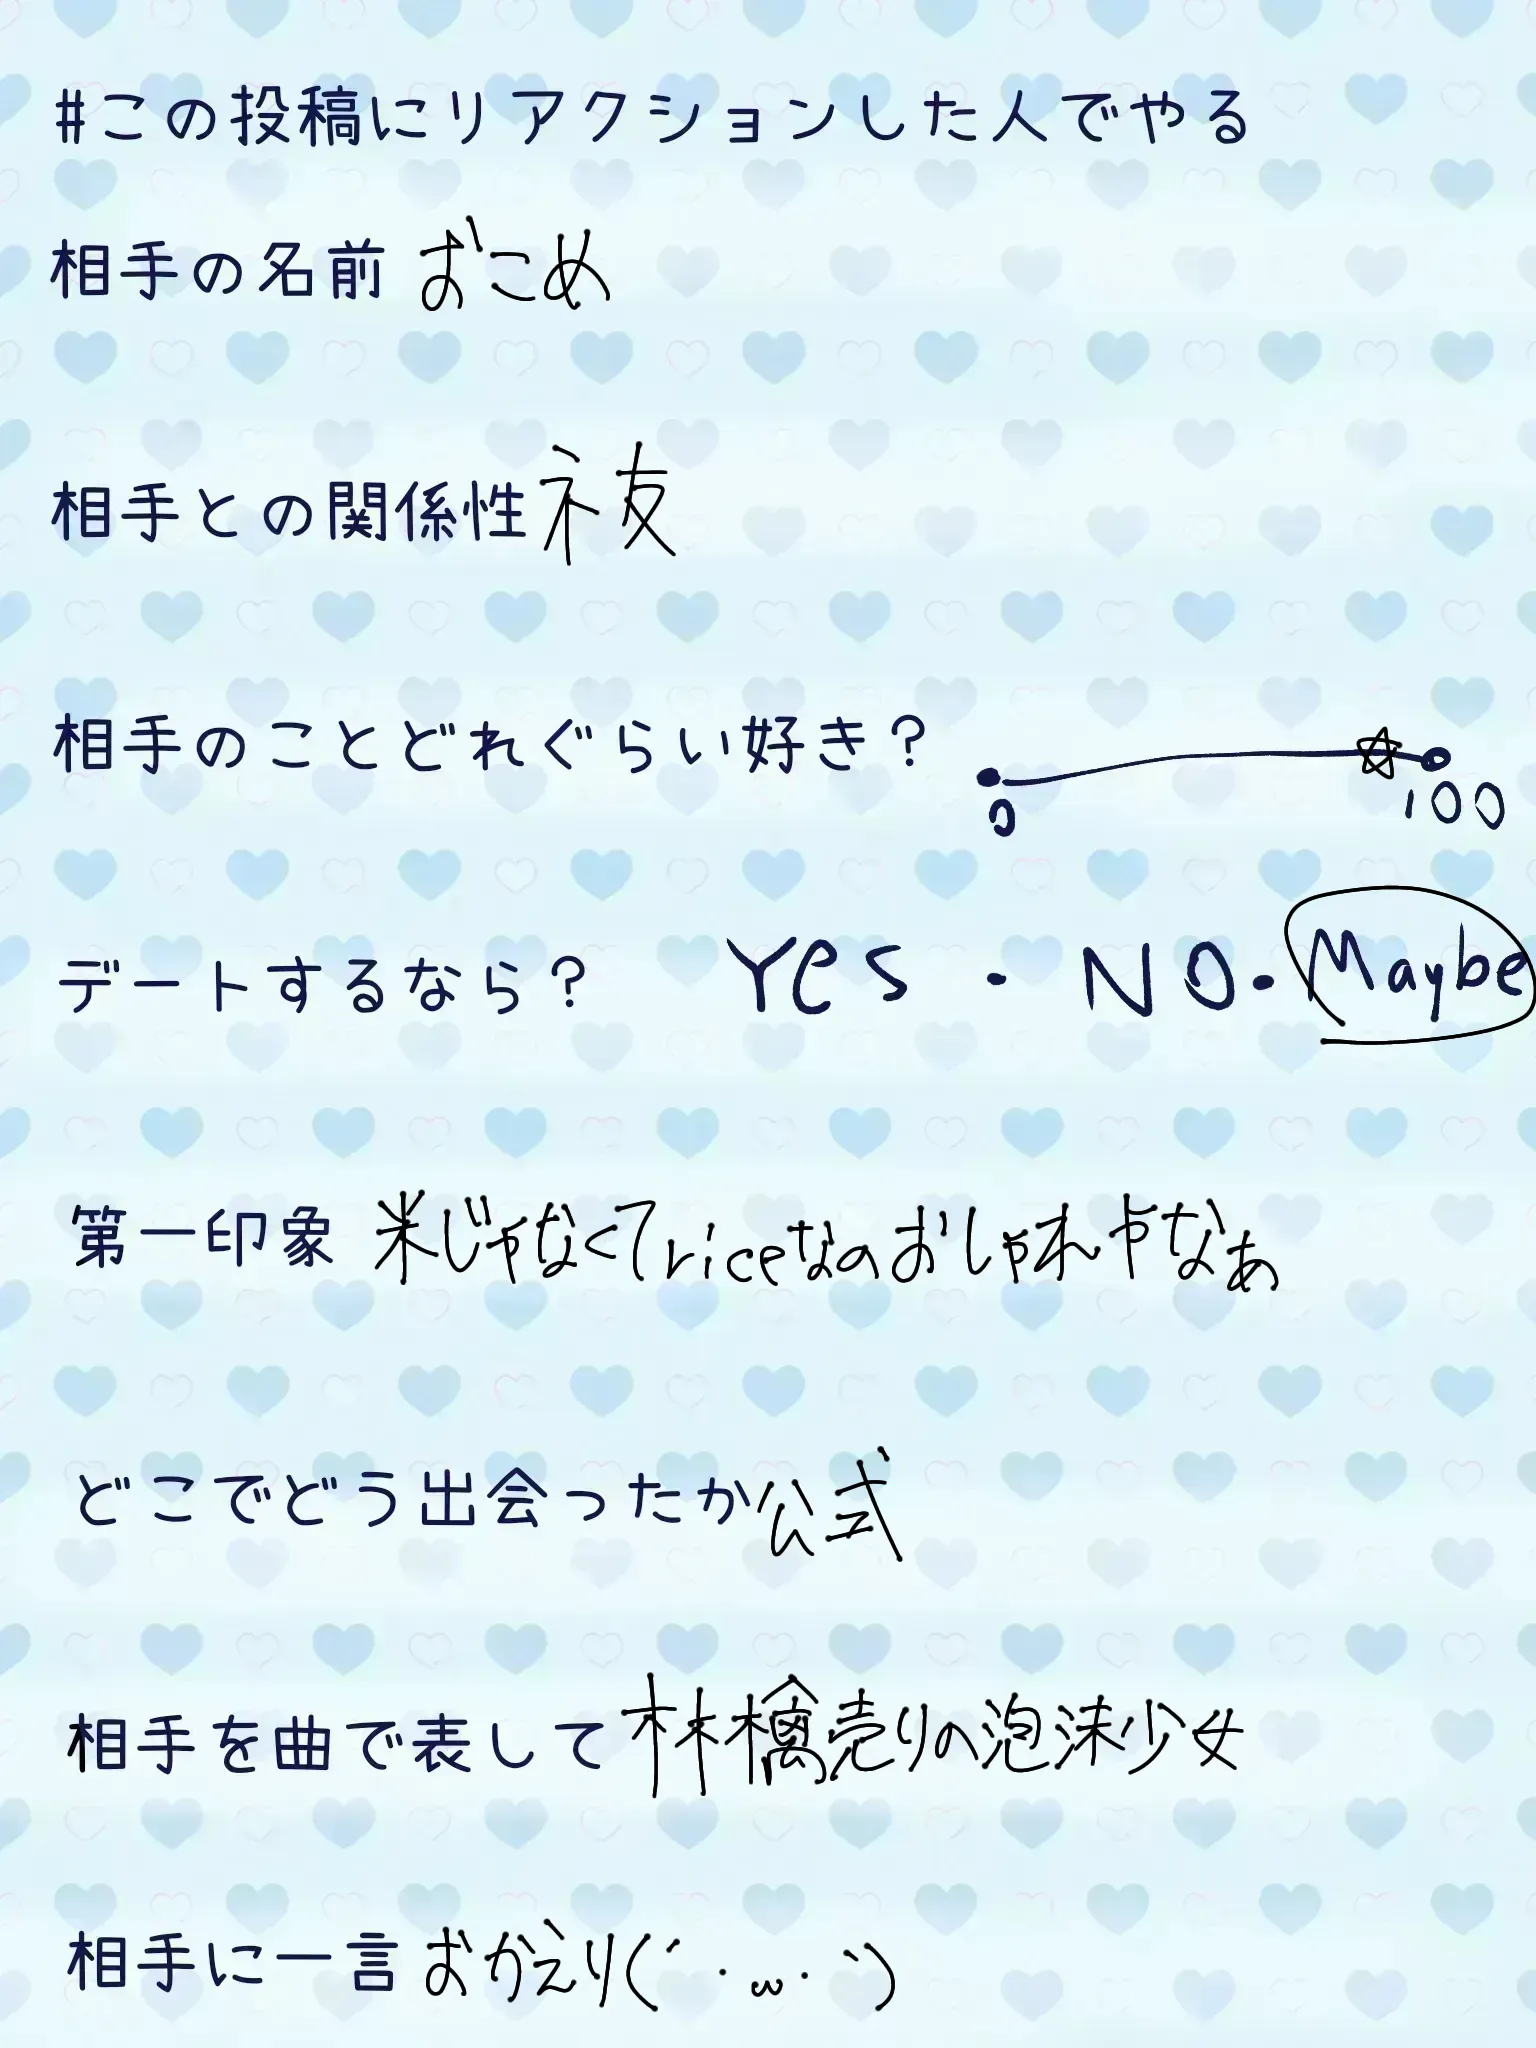 #この投稿にリアクションした人でやる
相手の名前 おこめ
相手との関係性 ネ友
相手のことどれぐらい好き？ 0 100
デートするなら？ Yes・NO・Maybe
第一印象 米じゃなくてriceなのおしゃれやなぁ
どこでどう出会ったか 公式
相手を曲で表して 林檎売りの泡沫少女
相手に一言 おかえり(´・ω・｀)